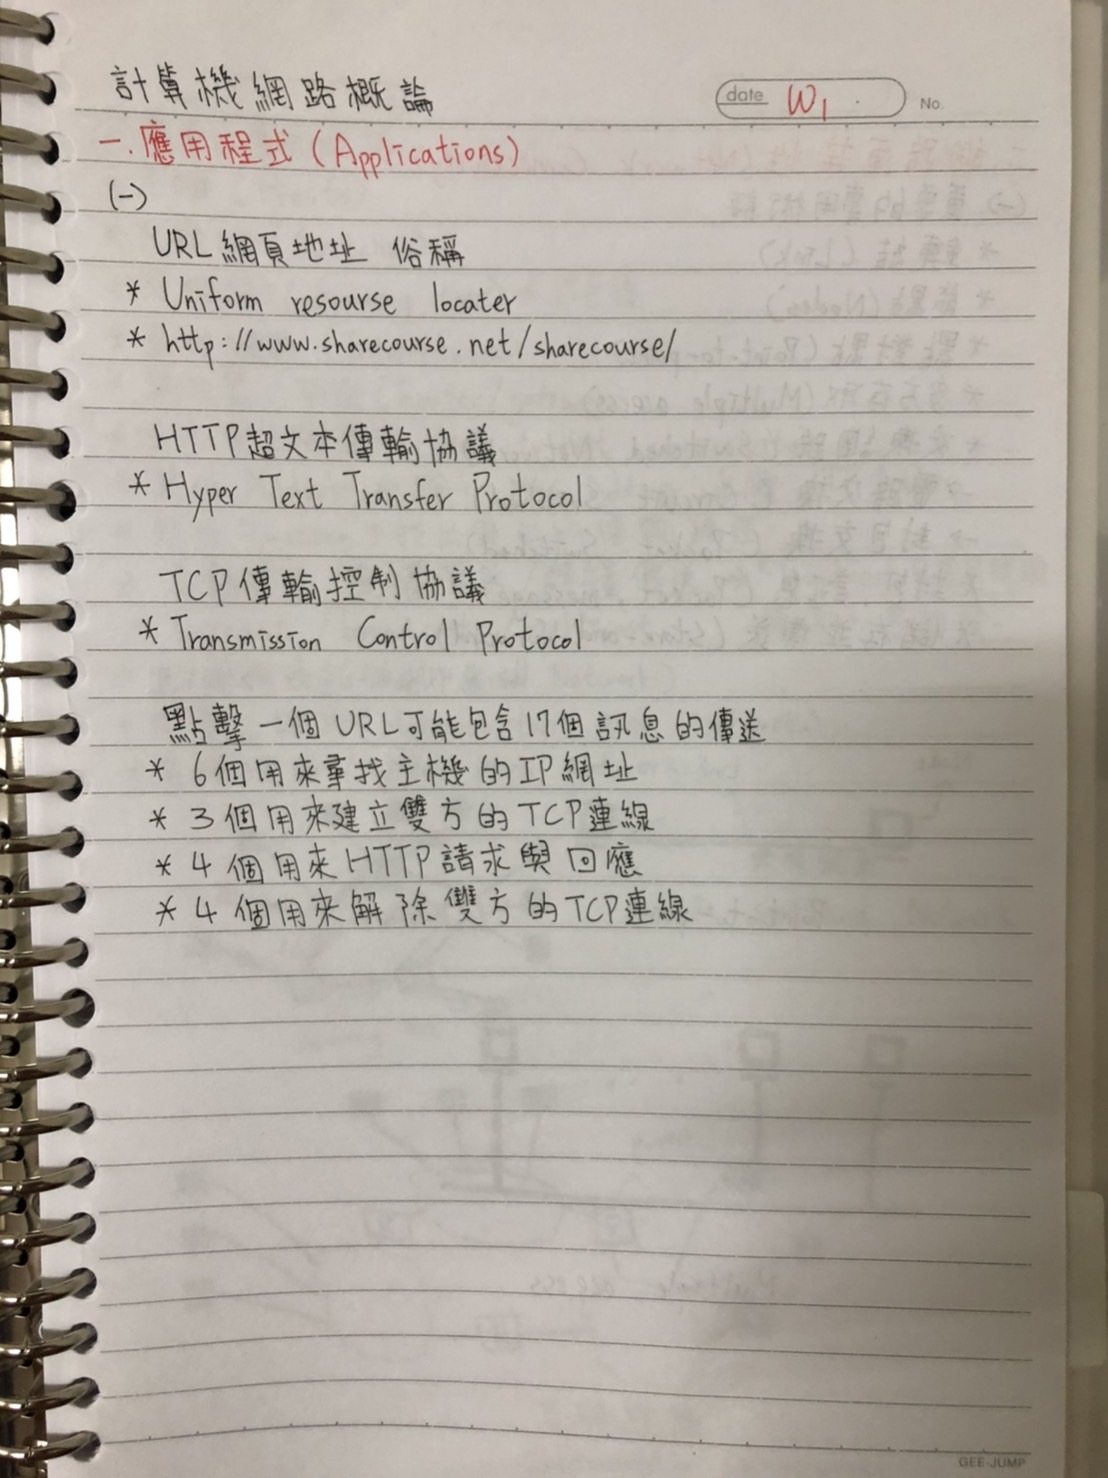 計算機網路概論
date W1 No.
一.應用程式(Applications)
(一)
URL網頁地址 俗稱
* Uniform resourse locater
* http://www.sharecourse.net/sharecourse/
HTTP超文本傳輸協議
* Hyper Text Transfer Protocol
TCP傳輸控制協議
* Transmission Control Protocol
點擊一個URL可能包含17個訊息的傳送
* 6個用來尋找主機的IP網址
* 3個用來建立雙方的TCP連線
* 4個用來HTTP請求與回應
* 4個用來解除雙方的TCP連線
GEE JUMP